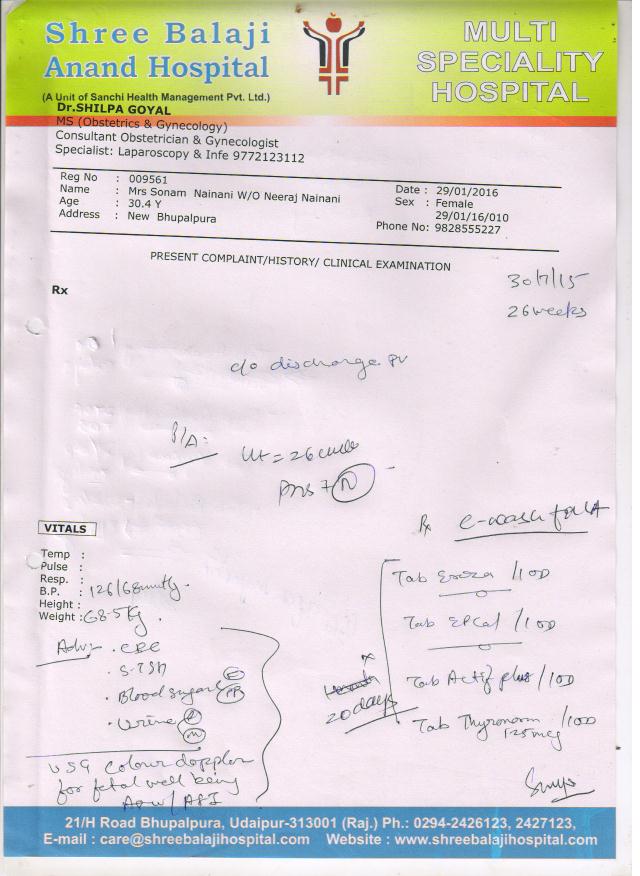 Shree Balaji
Anand Hospital
(A Unit of Sanchi Health Management Pvt. Ltd.)
MULTI
SPECIALITY
HOSPITAL
Dr.SHILPA GOYAL
MS (Obstetrics & Gynecology)
Consultant Obstetrician & Gynecologist
Specialist: Laparoscopy & Infe 9772123112
Reg No : 009561
Name : Mrs Sonam Nainani W/O Neeraj Nainani
Age : 30.4 Y
Address : New Bhupalpura
Date : 29/01/2016
Sex : Female
29/01/16/010
Phone No: 9828555227
PRESENT COMPLAINT/HISTORY/ CLINICAL EXAMINATION
Rx
30/7/15
26 weeks
c/o discharge PV
P/A:
Ut = 26
N
Rx
VITALS
Temp :
Pulse :
Resp. :
B.P. : 126/68
Height :
Weight : 68.5 Kg.
Adv
. CBC
. S-TSH
. Blood sugar F PP
. Urine R M
USG Colour doppler
for fetal well being
Tab /10D
Tab /10D
Tab Actif plus /10D
Tab Thyronorm /10D
125 mcg
20 days
21/H Road Bhupalpura, Udaipur-313001 (Raj.) Ph.: 0294-2426123, 2427123,
E-mail : care@shreebalajihospital.com Website : www.shreebalajihospital.com